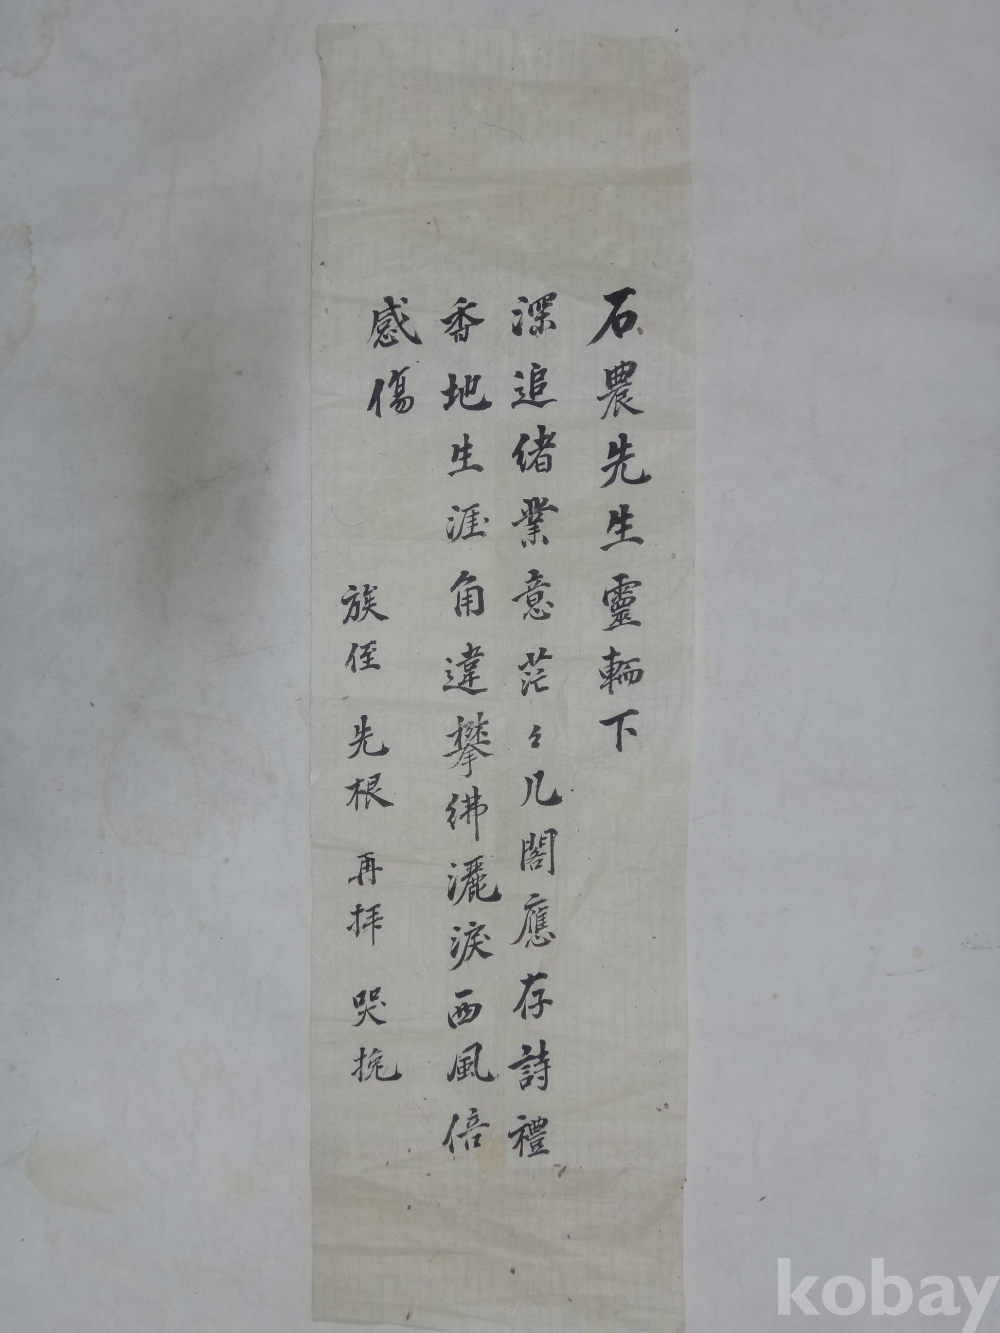 石農先生靈輀下
深追緖業意茫々几閣應存詩禮
香地生涯角違攀紼灑淚西風倍
感傷
族侄 先根 再拜 哭挽
kobay